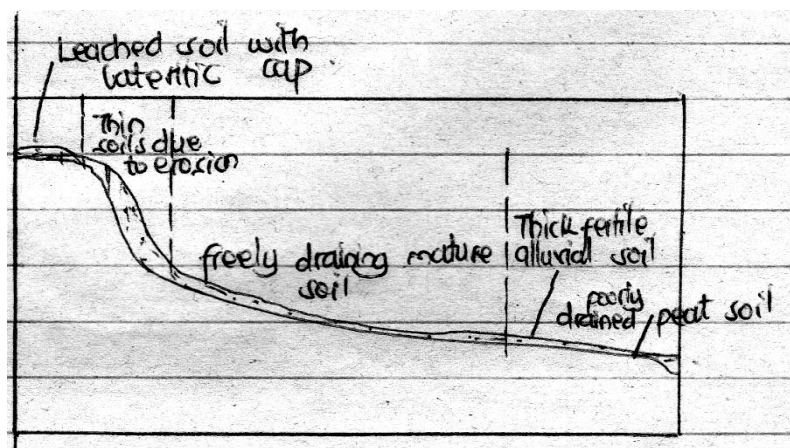 Leached soil with
lateritic cap
Thin
soils due
to erosion
freely draining mature
soil
Thick fertile
alluvial soil
poorly
drained
peat soil